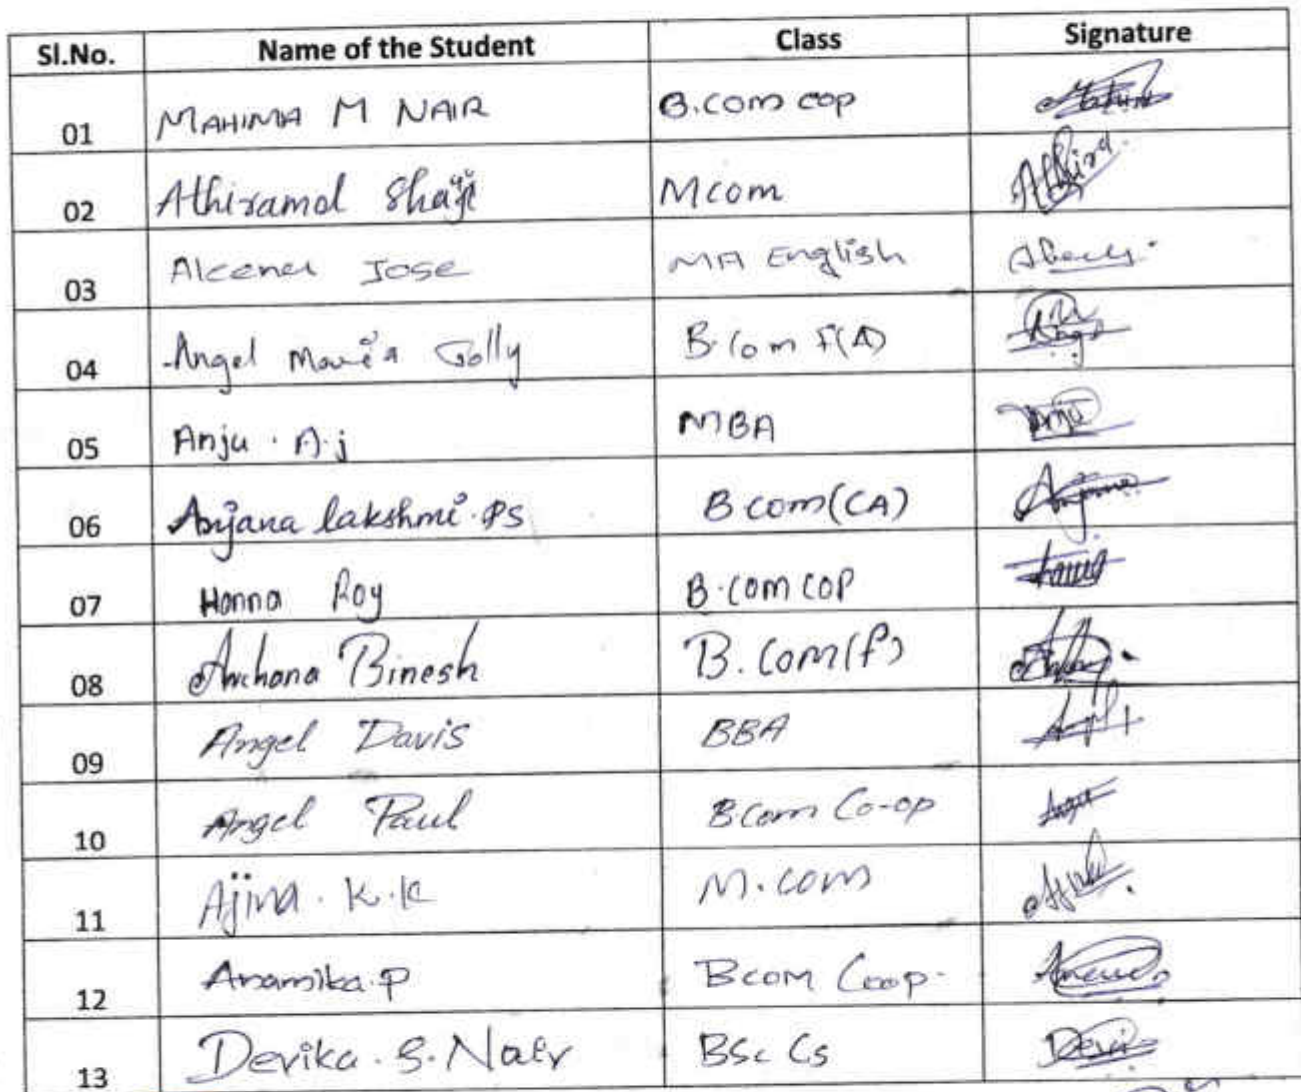 Sl.No. Name of the Student Class Signature
01 MAHIMA M NAIR B.com cop
02 Athiramol Shaji Mcom Athira
03 Aleena Jose MA English
04 Angel Maria Jolly B.Com F(A) Angel
05 Anju . A.j MBA Anju
06 Anjana lakshmi.PS B com(CA) Anjana
07 Hanna Roy B.com cop
08 Archana Binesh B.Com(f)
09 Angel Davis BBA Angel
10 Angel Paul B Com Co-op
11 Ajina . K.K M.com Ajina
12 Anamika.P Bcom Coop.
13 Devika . S. Nair BSc Cs Devi